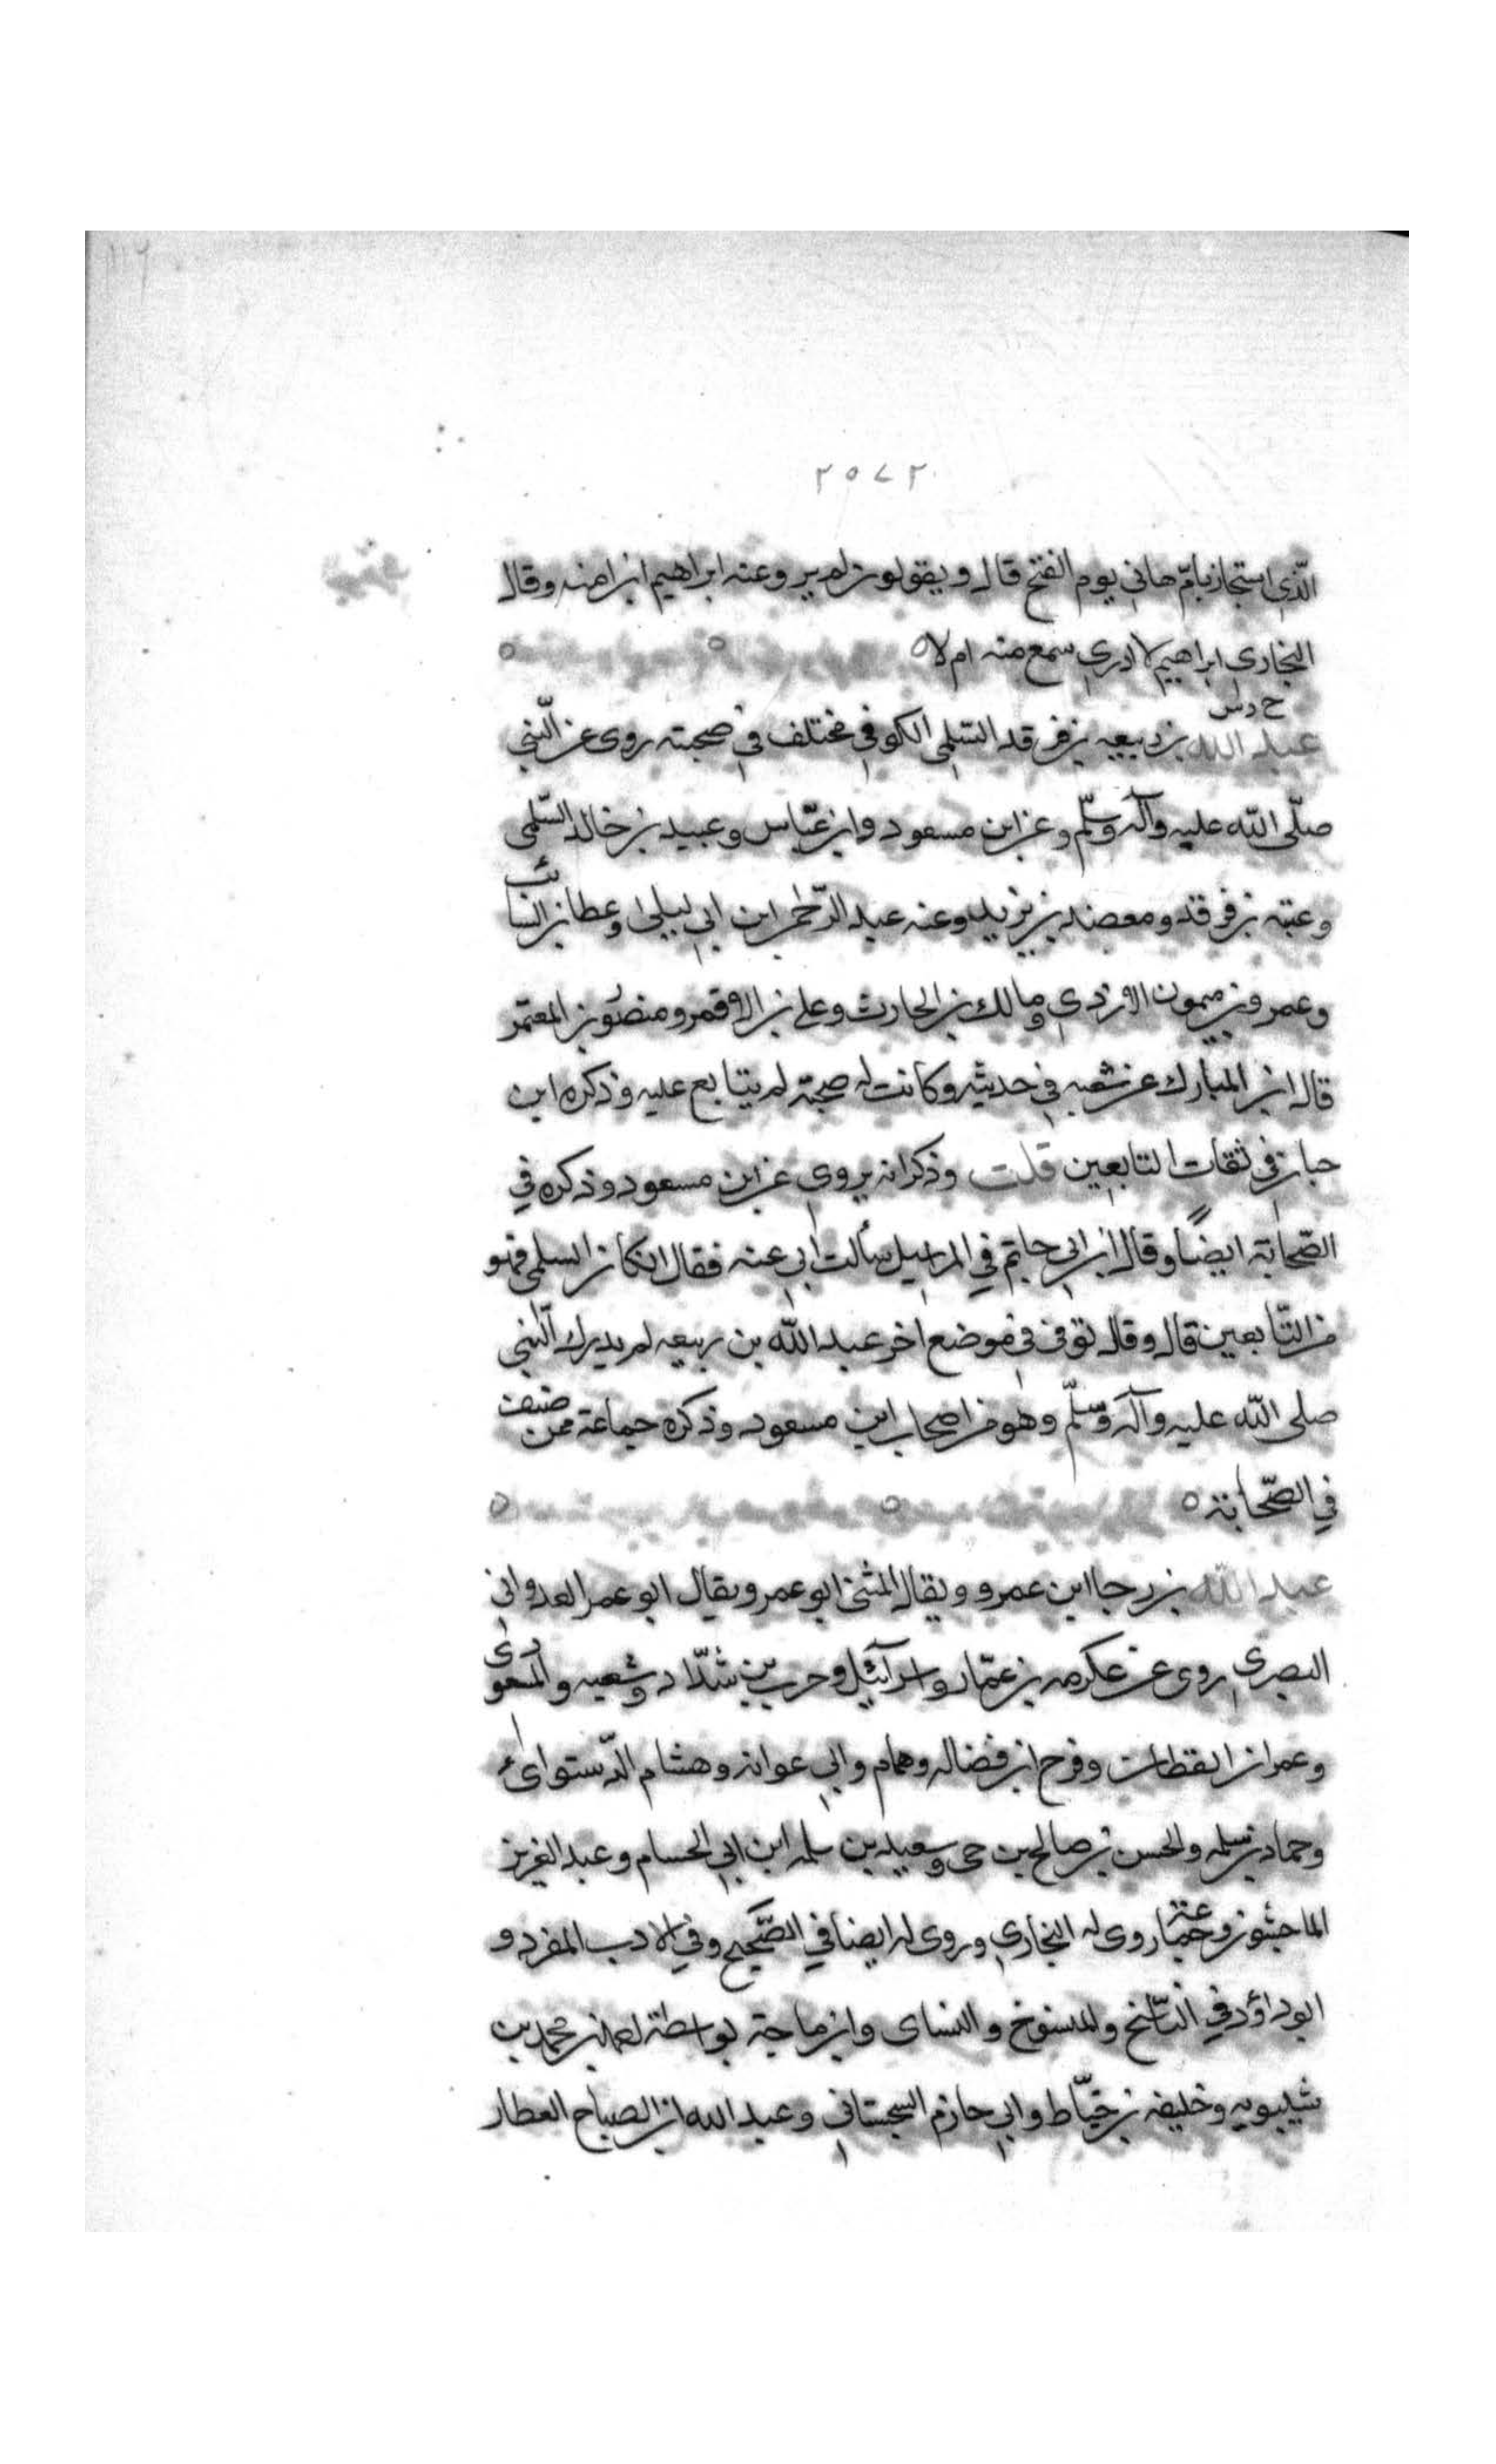 ٢٥٧٢
الّذي استجار بامّ هاني يوم الفتح قال ويقولون لم ير وعنه ابراهيم ابن امنه وقال
البخاري ابراهيم لا ادري سمع منه ام لا ٥
خ د س
عبد الله بن ربيعه بن فرقد السّلمي الكوفي مختلف في صحبته روى عن النّبي
صلّى الله عليه وآله وسلّم وعن ابن مسعود وابن عبّاس وعبيد بن خالد السّلمي
وعتبه بن فرقد ومعضد بن يزيد وعنه عبد الرّحمن ابن ابي ليلى وعطا بن السائب
وعمرو بن ميمون الازدي ومالك بن الحارث وعلي بن الاقمر ومنصور بن المعتمر
قال ابن المبارك عن شعبه في حديثه وكانت له صحبة لم يتابع عليه وذكره ابن
حبان في ثقات التابعين قلت وذكر انه يروي عن ابن مسعود وذكره في
الصّحابة ايضًا وقال ابن ابي حاتم في المراسيل سألت ابي عنه فقال ان كان السلمي فهو
من التّابعين قال وقال في موضع اخر عبد الله بن ربيعه لم يدرك النّبي
صلى الله عليه وآله وسلّم وهو من اصحاب ابن مسعود وذكره جماعة ممن صنف
في الصّحابة ٥
عبد الله بن رجا ابن عمرو ويقال المثنى ابو عمرو ويقال ابو عمر الغداني
البصري روى عن عكرمه بن عمّار واسرآئيل وحرب بن شدّاد وشعبه والمسعودي
وعمران القطان وفرح ابن فضاله وهمام وابي عوانه وهشام الدّستوائ
وحماد بن سلمه والحسن بن صالح بن حي وسعيد بن سلمه ابن ابي الحسام وعبد العزيز
الماجشون وجماعة روى له البخاري وروى له ايضا في الصّحيح وفي الادب المفرد و
ابو داؤد في النّاسخ والمنسوخ والنساى وابن ماجة بواسطة محمد بن
وخليفه بن خيّاط وابي حازم السجستاني وعبد الله ابن الصباح العطار